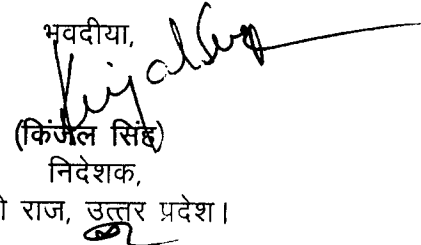 भवदीया,
(किंजल सिंह)
निदेशक,
राज, उत्तर प्रदेश।